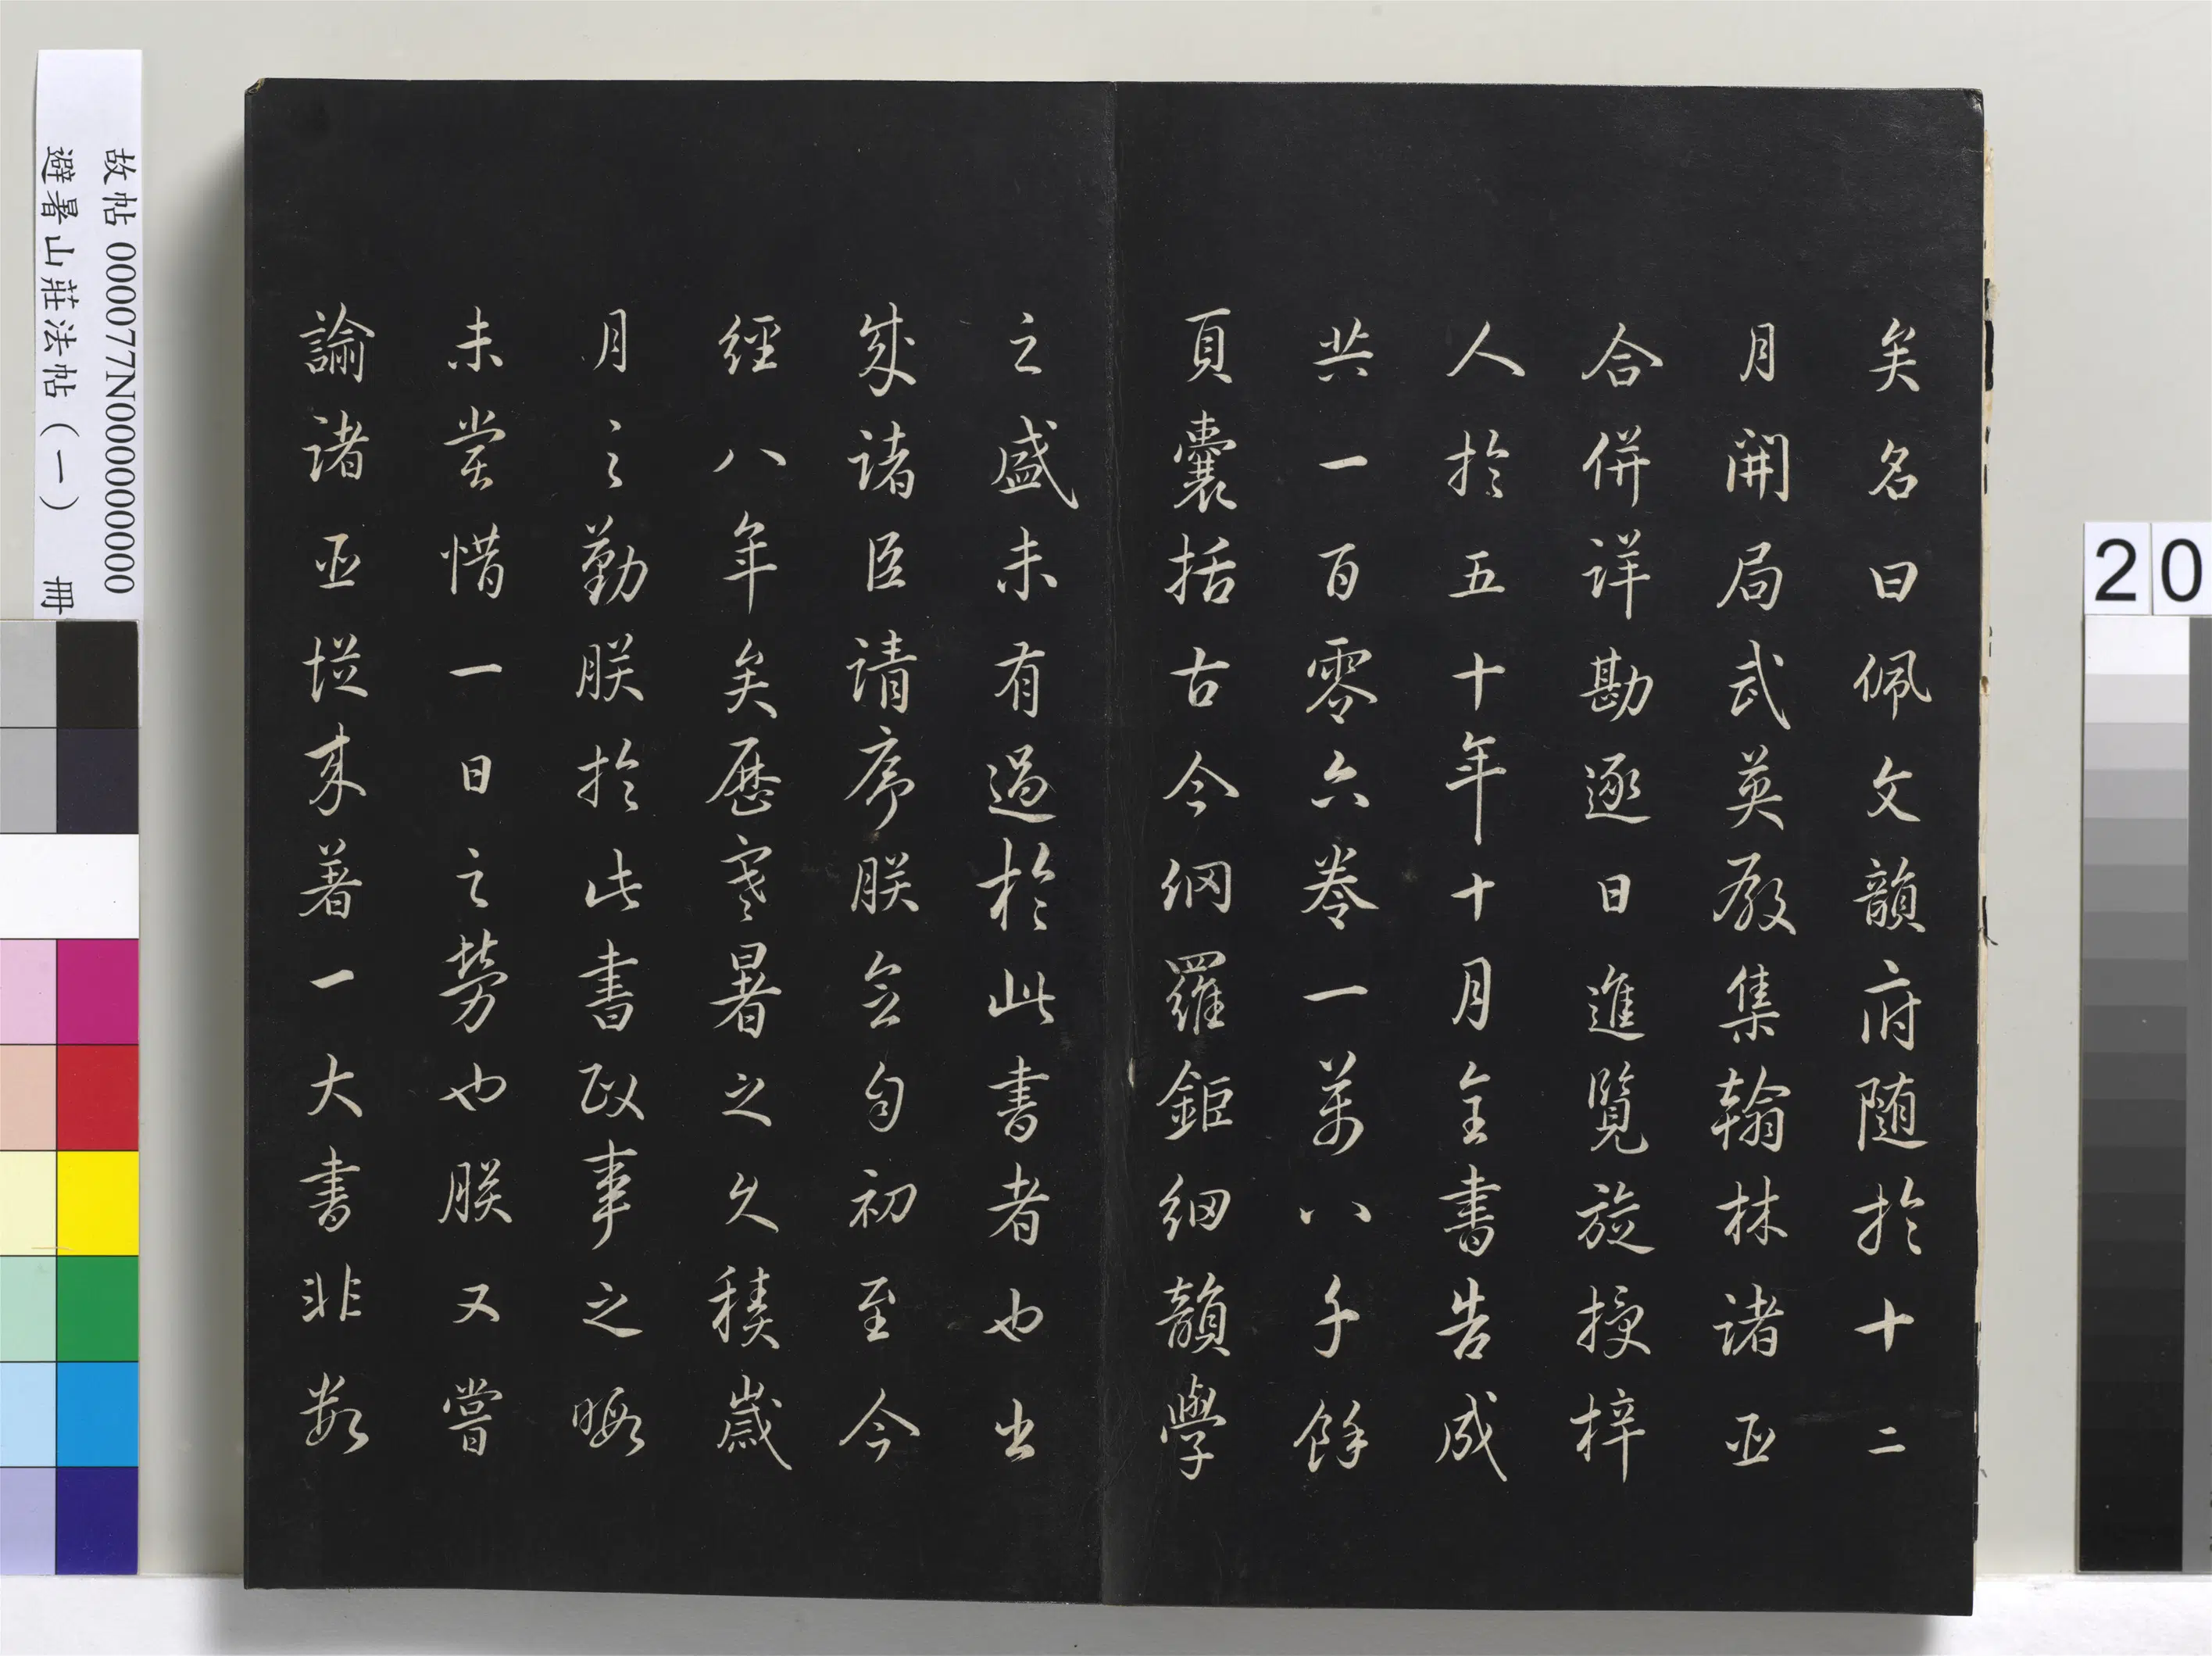 矣名曰佩文韻府随於十二
月開局武英殿集翰林諸臣
合併詳勘逐日進覽旋授梓
人於五十年十月全書告成
共一百零六卷一萬八千餘
頁囊括古今網羅鉅細韻學
之盛未有過於此書者也書
成諸臣請序朕念自初至今
經八年矣歷寒暑之久積歲
月之勤朕於此書政事之暇
未嘗惜一日之勞也朕又嘗
論諸臣從來著一大書非數
故帖 000077N000000000
避暑山莊法帖(一) 冊
20